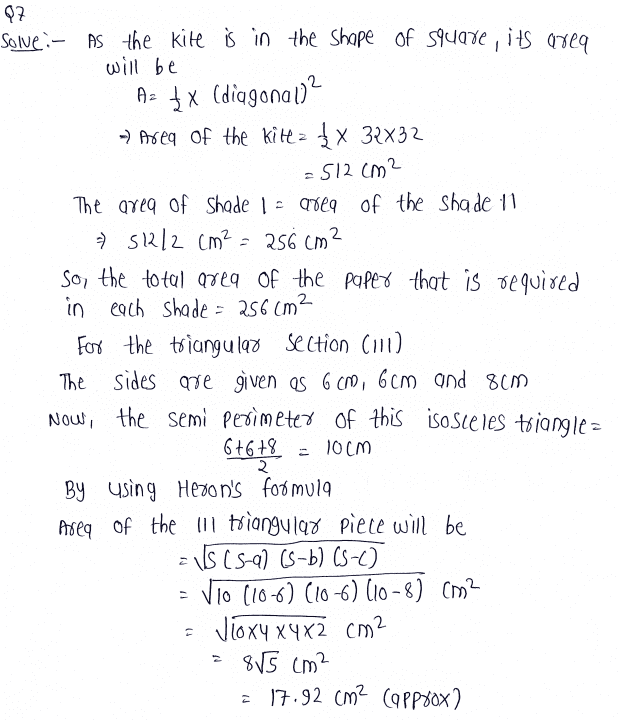 Q7
Solve:- As the kite is in the shape of square, its area
will be
A= 1/2 x (diagonal)²
→ Area of the kite = 1/2 x 32x32
= 512 cm²
The area of shade I = area of the shade II
⇒ 512/2 cm² = 256 cm²
So, the total area of the paper that is required
in each shade = 256 cm²
For the triangular section (III)
The sides are given as 6 cm, 6cm and 8cm
Now, the semi perimeter of this isosceles triangle =
6+6+8/2 = 10cm
By using Heron's formula
Area of the III triangular piece will be
= √s (s-a) (s-b) (s-c)
= √10 (10-6) (10-6) (10-8) cm²
= √10x4x4x2 cm²
= 8√5 cm²
= 17.92 cm² (approx)